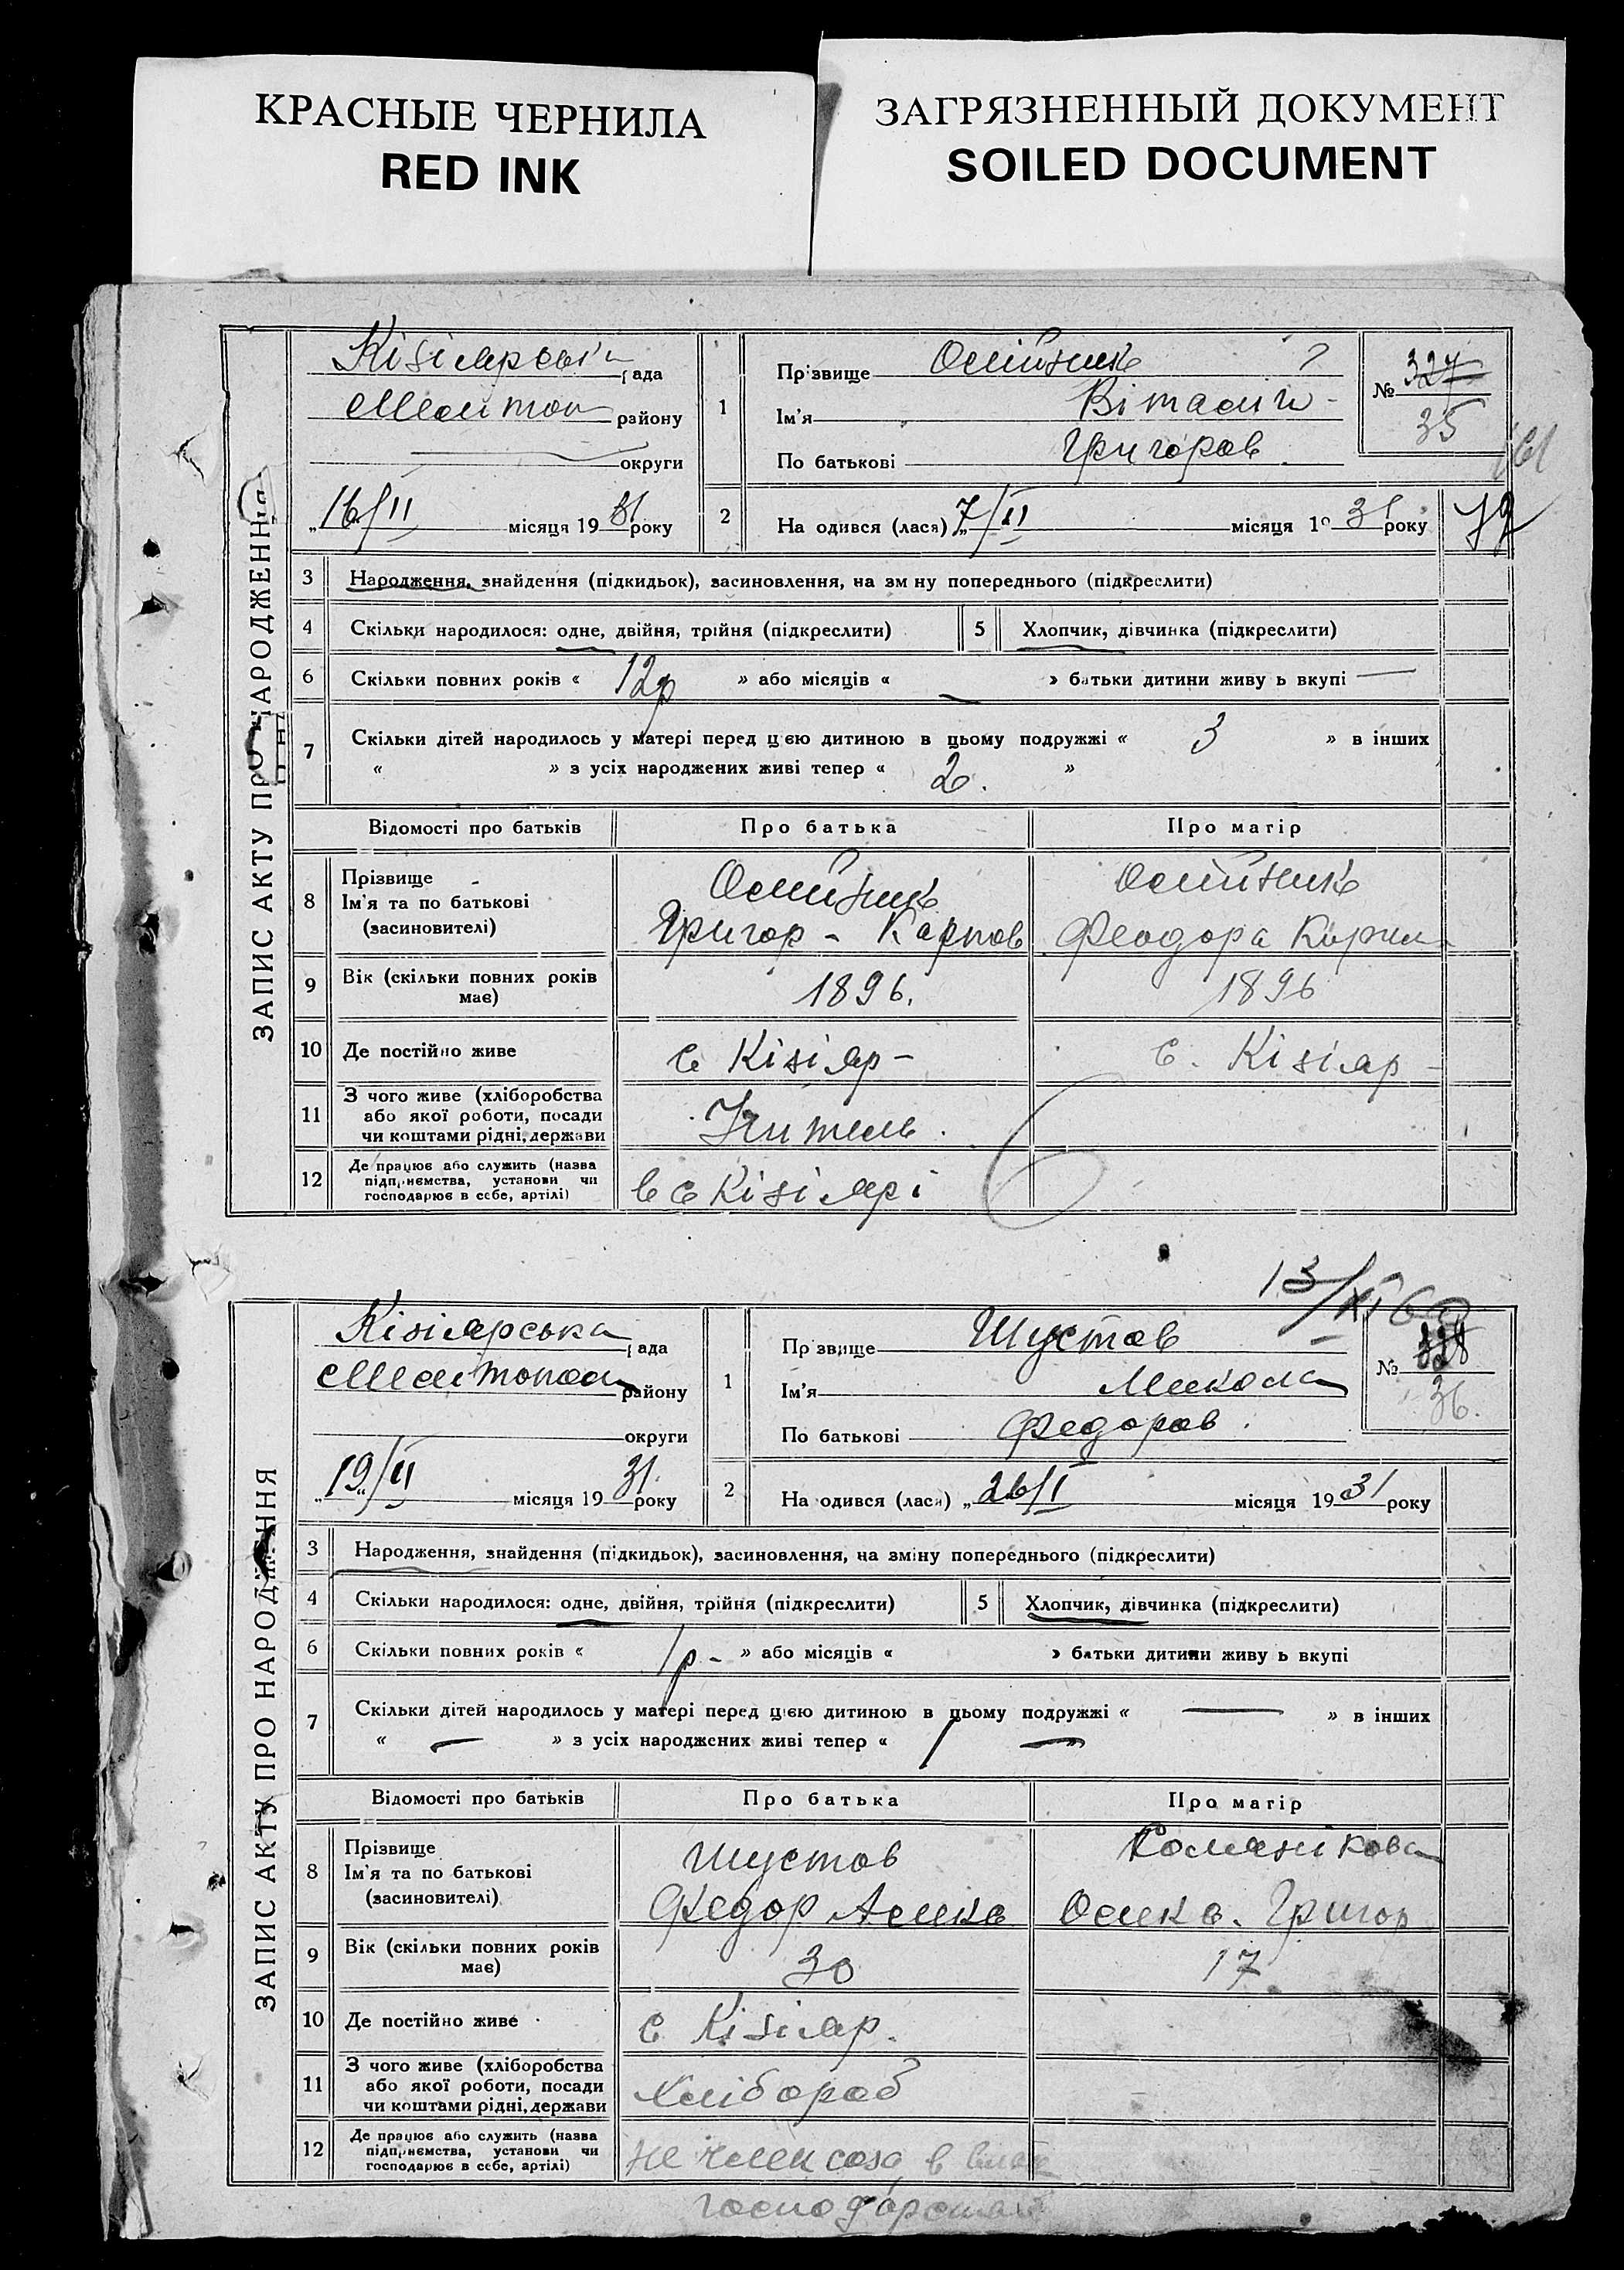 КРАСНЫЕ ЧЕРНИЛА
RED INK
ЗАГРЯЗНЕННЫЙ ДОКУМЕНТ
SOILED DOCUMENT
ЗАПИС АКТУ ПРО НАРОДЖЕННЯ
Кізіярська рада
Мелітоп району
округи
„16/II місяця 1931 року
1
Прізвище Олійник
Ім'я Віталій
По батькові Григоров
№ 327
35
2
Народився (лася) „7/II місяця 1931 року
3 Народження, знайдення (підкидьок), засиновлення, на зміну попереднього (підкреслити)
4 Скільки народилося: одне, двійня, трійня (підкреслити) 5 Хлопчик, дівчинка (підкреслити)
6 Скільки повних років « 12 р » або місяців « » батьки дитини живуть вкупі —
7 Скільки дітей народилось у матері перед цією дитиною в цьому подружжі « 3 » в інших
« » з усіх народжених живі тепер « 2. »
Відомості про батьків Про батька Про матір
8 Прізвище Ім'я та по батькові (засновителі)
Олійник
Григор - Карпов
Олійник
Феодора Кирил
9 Вік (скільки повних років має) 1896. 1896
10 Де постійно живе с Кізіяр - с. Кізіяр -
11 З чого живе (хліборобства або якої роботи, посади чи коштами рідні, держави Учитель.
12 Де працює або служить (назва підприємства, установи чи господарює в себе, артілі) в с Кізіярі
13/XI 60
ЗАПИС АКТУ ПРО НАРОДЖЕННЯ
Кізіярська рада
Мелітопол району
округи
„19/II місяця 1931 року
1
Прізвище Шустов
Ім'я Микола
По батькові Федоров.
№ 328
36.
2
Народився (лася) „26/I місяця 1931 року
3 Народження, знайдення (підкидьок), засиновлення, на зміну попереднього (підкреслити)
4 Скільки народилося: одне, двійня, трійня (підкреслити) 5 Хлопчик, дівчинка (підкреслити)
6 Скільки повних років « 1 р - » або місяців « » батьки дитини живуть вкупі
7 Скільки дітей народилось у матері перед цією дитиною в цьому подружжі « — » в інших
« — » з усіх народжених живі тепер « 1 — »
Відомості про батьків Про батька Про матір
8 Прізвище Ім'я та по батькові (засиновителі)
Шустов
Федор Алекс
Олекс. Григор
9 Вік (скільки повних років має) 30 17
10 Де постійно живе с Кізіяр.
11 З чого живе (хліборобства або якої роботи, посади чи коштами рідні, держави Хлібороб
12 Де працює або служить (назва підприємства, установи чи господарює в себе, артілі) не член созу в